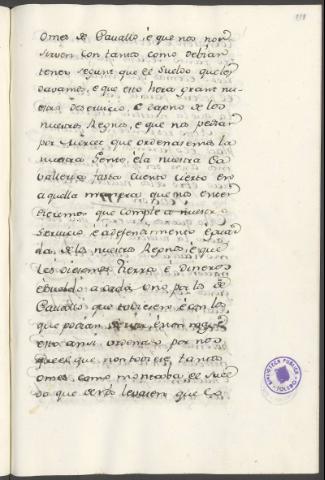 omes de Cavallo, é que nos non
sirven con tanta como debrian
tener segunt que el sueldo que les
davamos, e que esto hera grant nu-
estro deservicio, e dapno de los
nuestros Regnos, e que nos pedian
por Merced que ordenasemos la
nuestra Gente, é la nuestra Ca
valleria fasta cuento cierto en
aquella manera que nos enten
diesemos que cumple a nuestro
servicio é a defendimiento é guar
da de los nuestros Regnos, é que
les diesemos tierra é Dineros
é sueldo a cada uno por los de
Cavallo que toviesen é con los
que podian servir, é non
esto ansi ordenado por nos
que el que non toviese tantos
omes, como montaba el suel
do que de nos levasen que Co